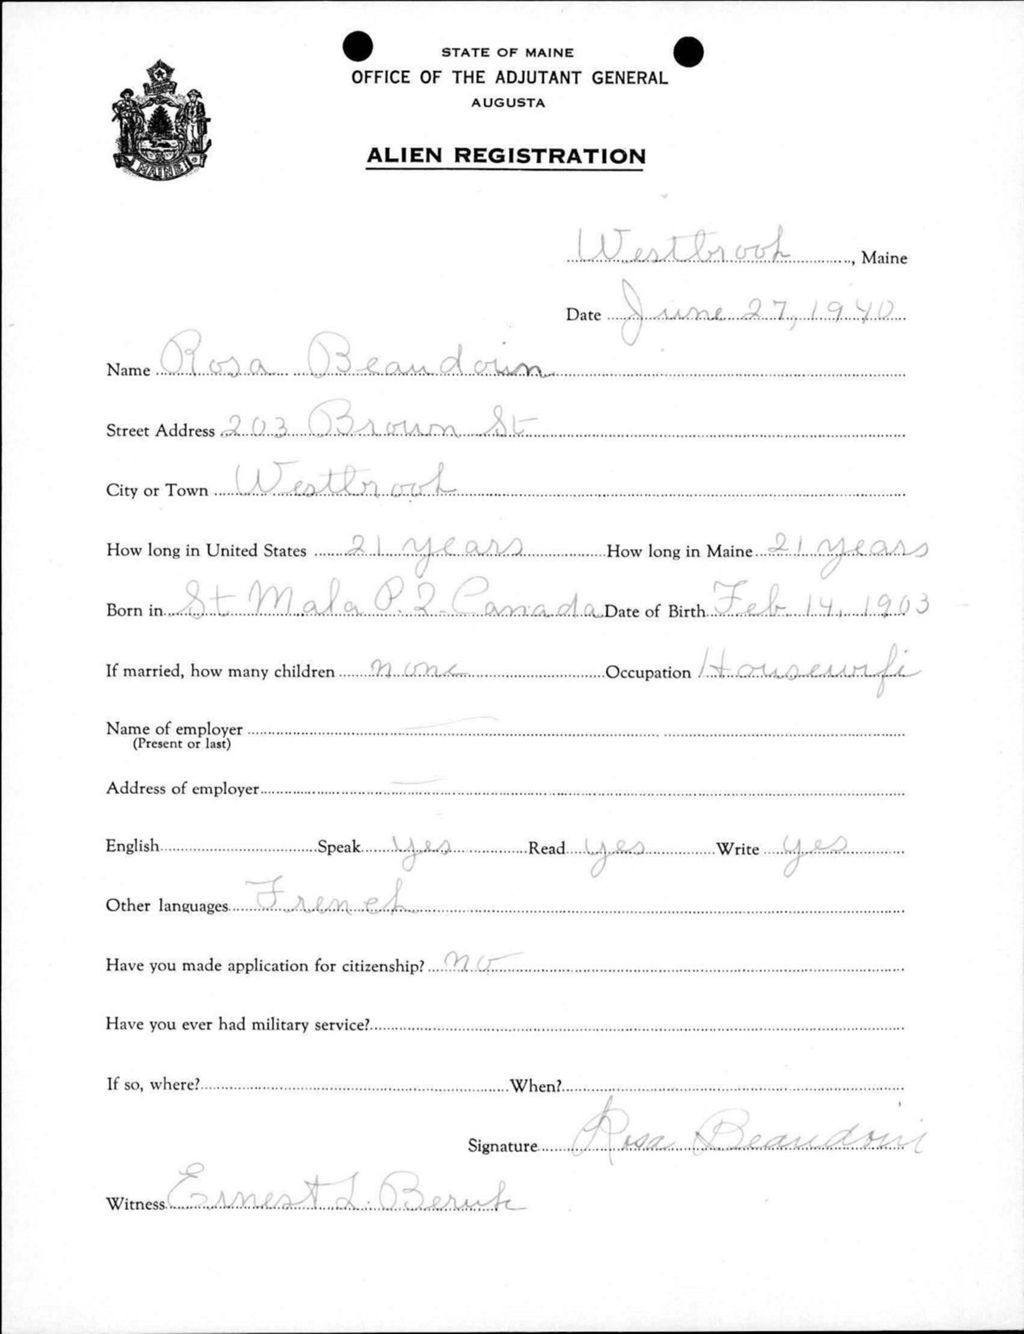 STATE OF MAINE
OFFICE OF THE ADJUTANT GENERAL
AUGUSTA
ALIEN REGISTRATION
MAINE
Westbrook, Maine
Date June 27, 1940
Name Rosa Beaudoin
Street Address 203 Brown St
City or Town Westbrook
How long in United States 21 years How long in Maine 21 years
Born in St Mala P.Q. Canada Date of Birth Feb. 14, 1903
If married, how many children none Occupation Housewife
Name of employer
(Present or last)
Address of employer
English Speak yes Read yes Write yes
Other languages French
Have you made application for citizenship? no
Have you ever had military service?
If so, where? When?
Signature Rosa Beaudoin
Witness Ernest L.